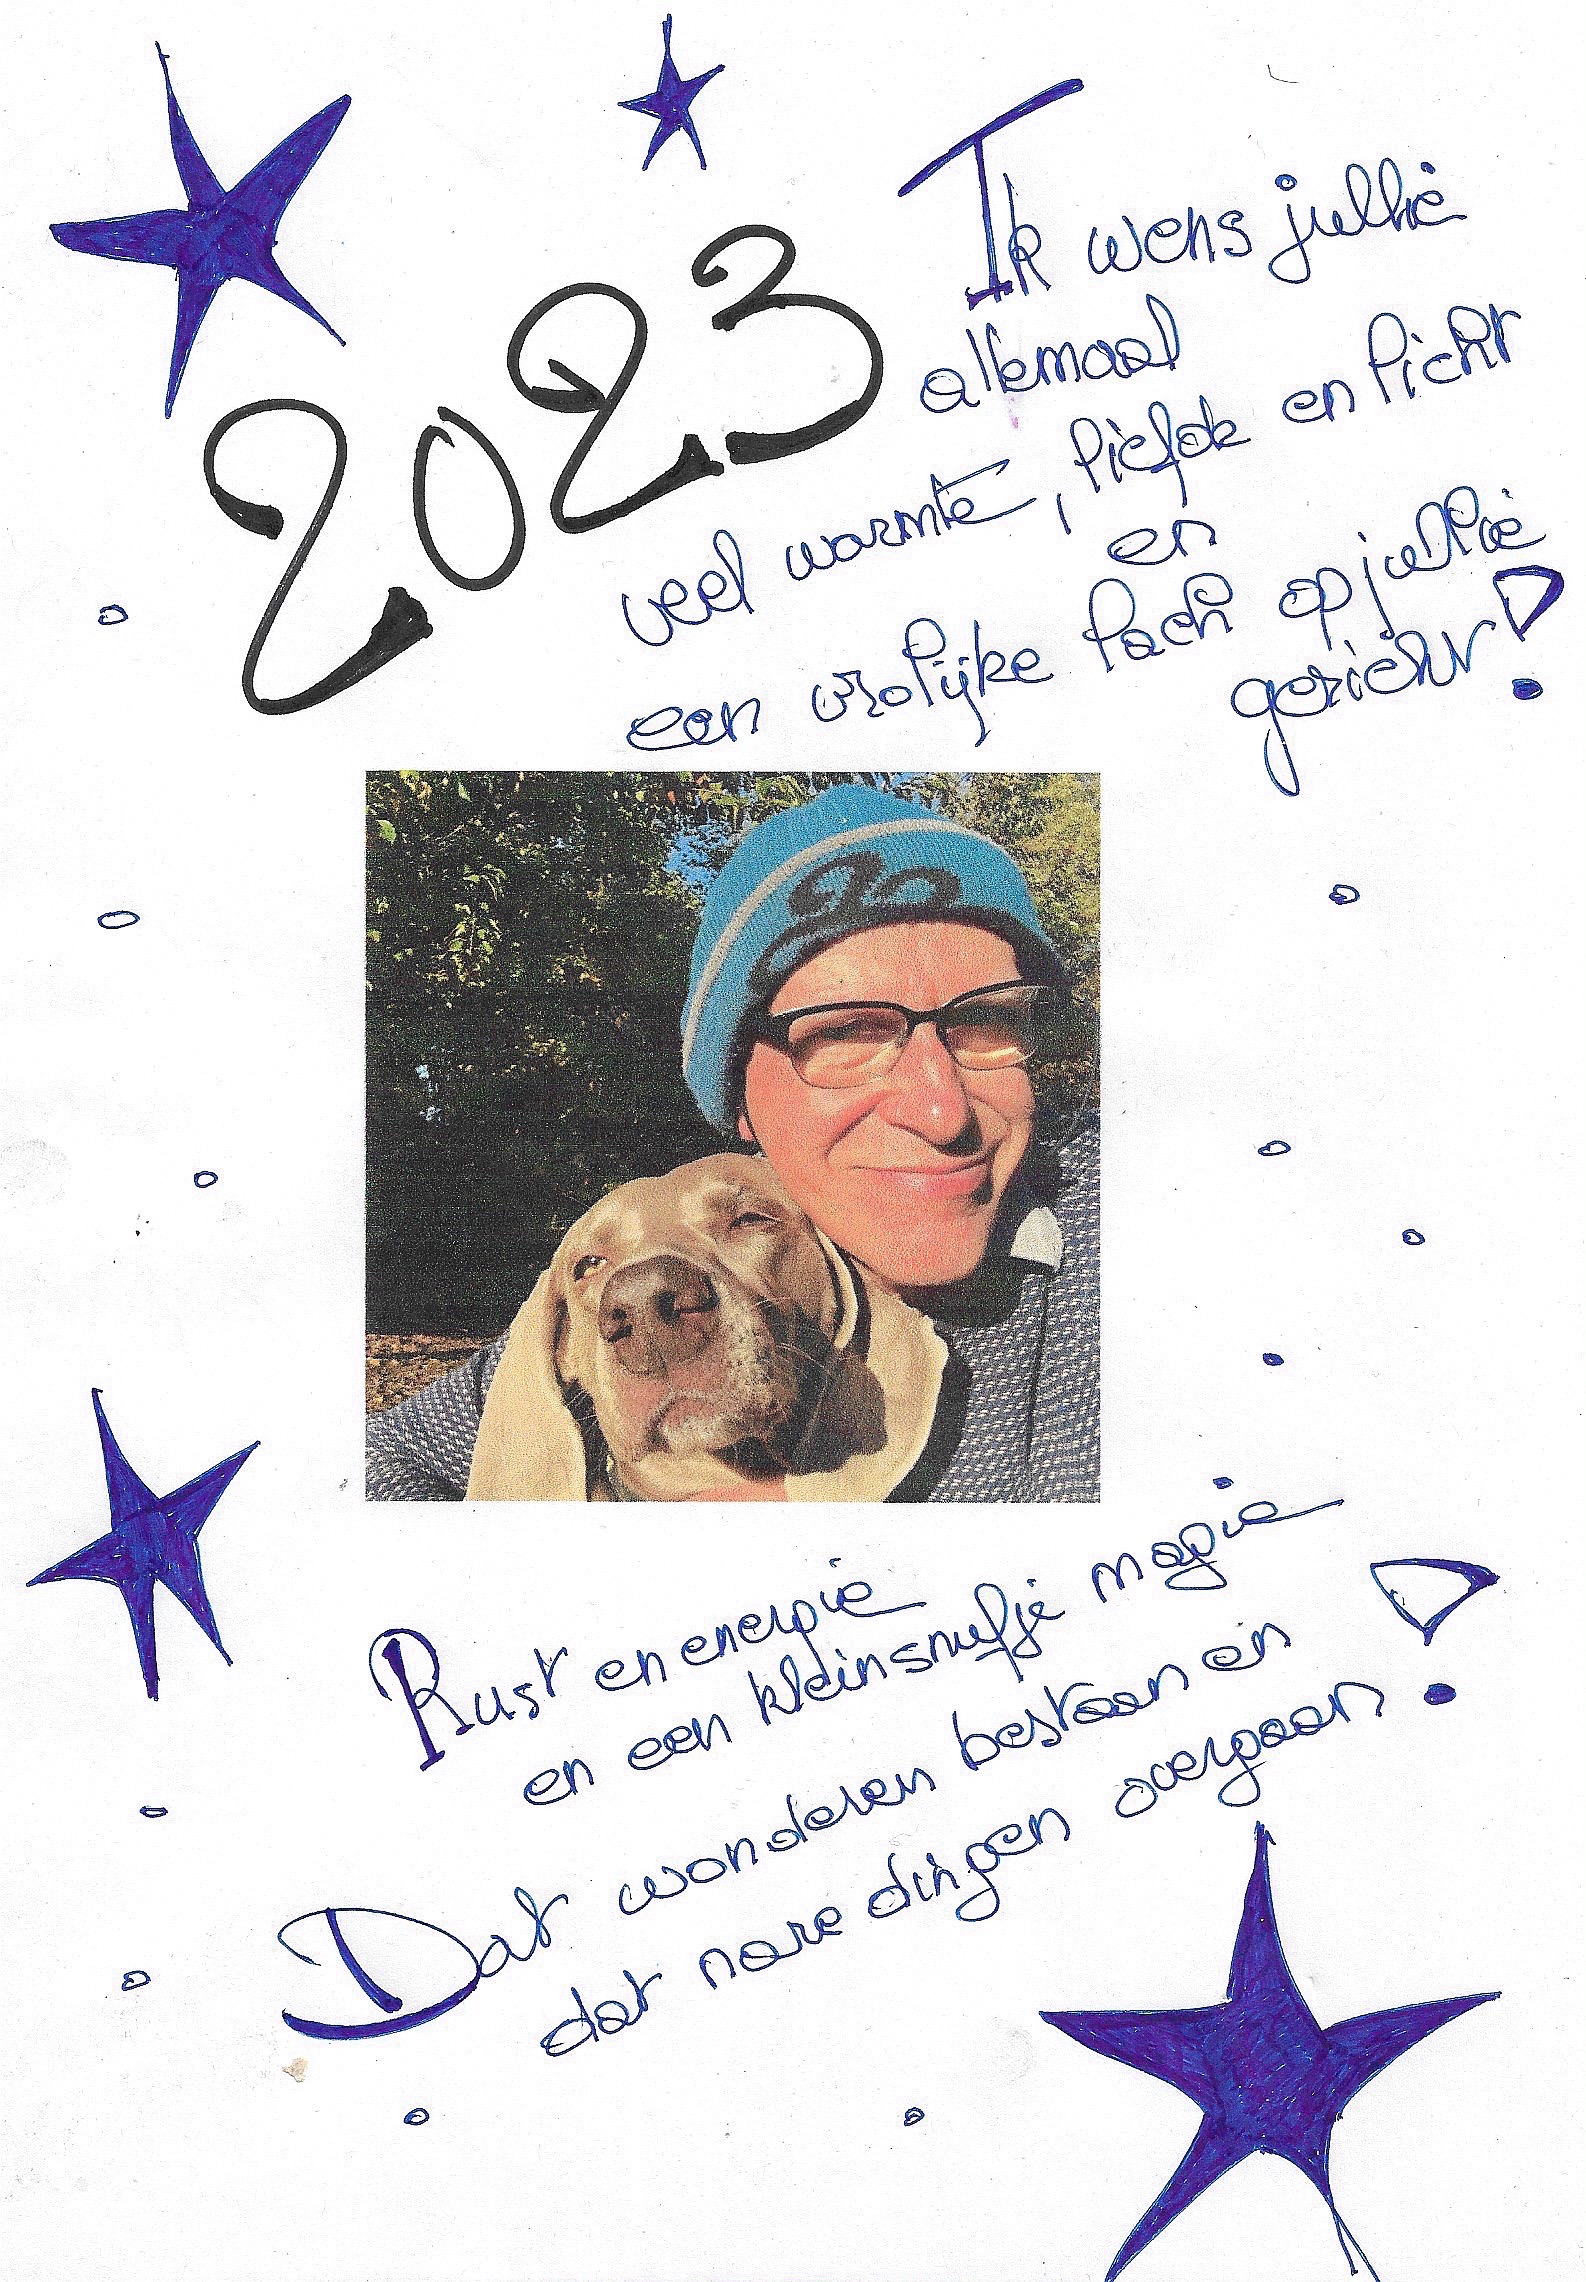 2023
Ik wens jullie
allemaal
veel warmte, liefde en licht
en
een vrolijke lach op jullie
gericht!
go
Rust en energie
en een klein snufje magie
Dat wonderen bestaan en
dat nare dingen overgaan!